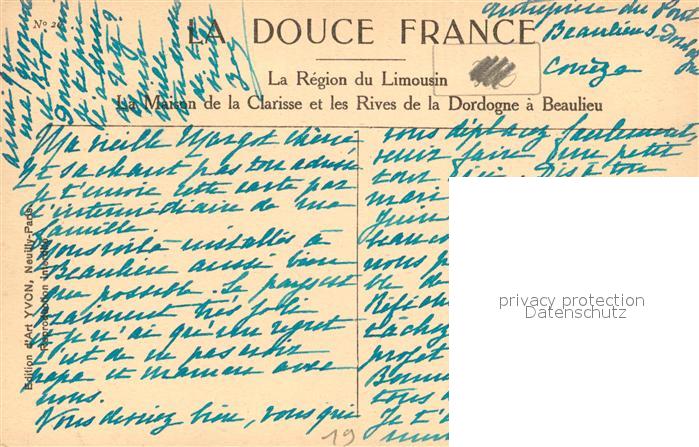 No 20
LA DOUCE FRANCE
La Région du Limousin
La Maison de la Clarisse et les Rives de la Dordogne à Beaulieu
entreprise du Pont
Beaulieu s. Dordogne
Corrèze
Ma vieille Margot chérie
Ne sachant pas ton adresse
je t'envoie cette carte par
l'intermédiaire de ma
famille.
Nous voilà installés à
Beaulieu aussi bien
que possible. Le pays est
vraiment très joli
et je n'ai qu'un regret
c'est de ne pas avoir
papa et maman avec
nous.
Vous devriez bien, vous qui
vous déplacez facilement
venir faire une petit
tour ici. Dis à ton
mari
beauco
nous p
ble de
Réfléch
tâchez
projet
tous
Je t'
Edition d'Art YVON, Neuilly-Paris
Reproduction Interdite
privacy protection
Datenschutz
19